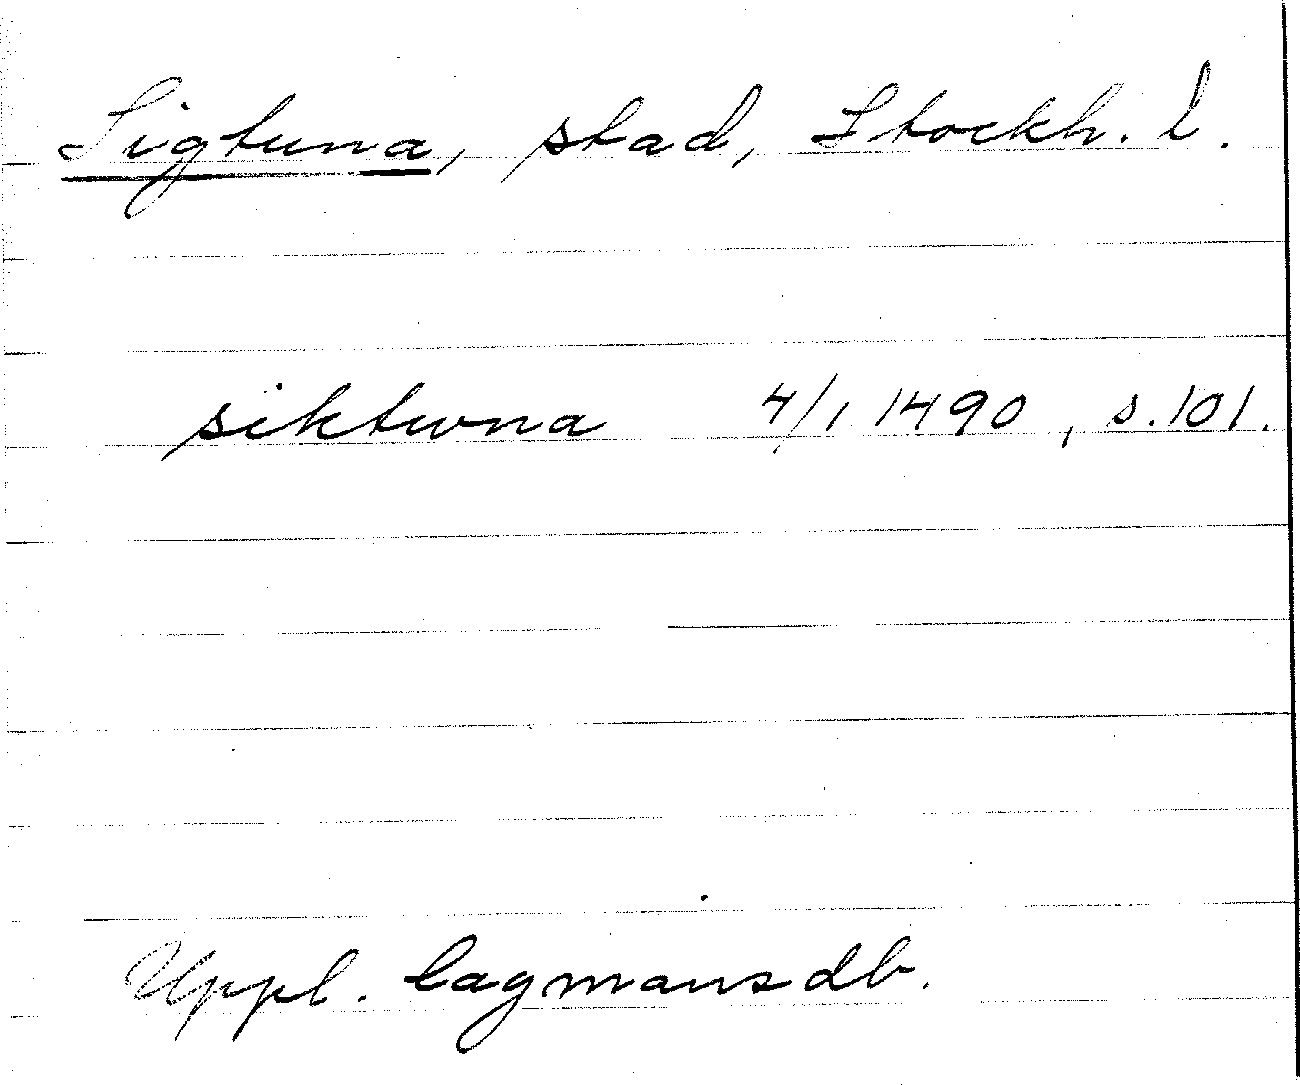 Sigtuna, stad, Stockh. l.
siktwna 4/1 1490, s. 101.
Uppl. lagmansdb.